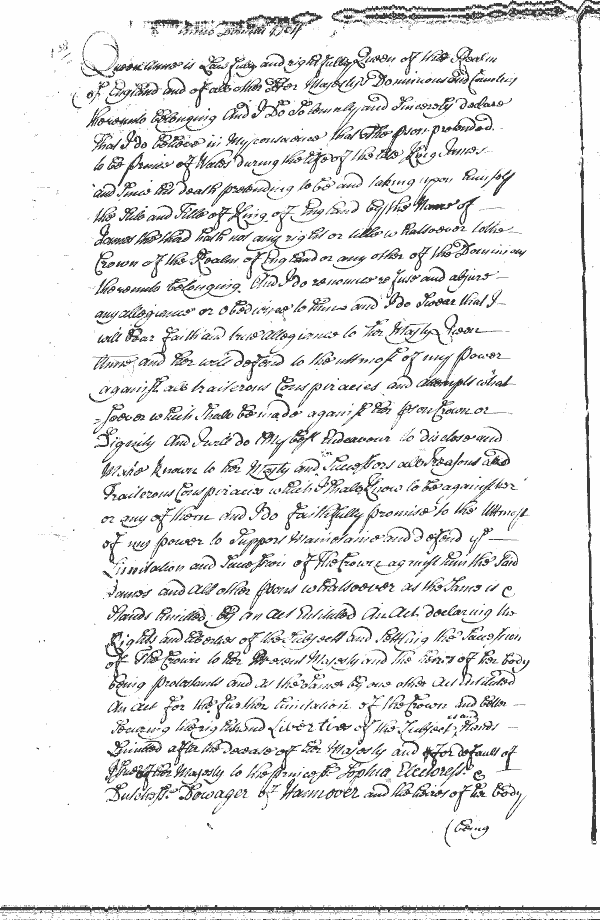 Anno Domini 1704
Queen Anne is Lawfully and rightfully Queen of this Realm
of England and of all other Her Majesties Dominions and Countries
thereunto belonging And I Do Solemnly and Sincerely declare
that I do believe in My conscience that the pson pretended
to be prince of Wales during the life of the late King James
and Since his death pretending to be and taking upon himself
the Stile and Title of King of England by the Name of
James the third hath not any right or title whatsoever to the
Crown of the Realm of England or any other of the Dominions
thereunto belonging And I do renounce refuse and abjure
any allegiance or obedience to him and I do Swear that I
will bear faith and true Allegiance to her Majty Queen
Anne and her will defend to the uttmost of my power
against all traiterous Conspiracies and attempts what
=soever which Shall be made against her pson Crown or
Dignity And I will do My best Endeavour to disclose and
Make known to her Majty and Successors all treasons and
traiterous Conspiracies which I shall Know to be against her
or any of them and I do faithfully promise to the uttmost
of my power to Support Maintaine and defend ye
Limitation and Succession of the Crown against him the said
James and All other psons whatsoever as the Same is &
Stands limitted by an Act Entituled An Act declaring the
Rights and liberties of the Subject and settling the Succession
of The Crown to her Present Majesty and the heires of her body
being protestants and as the Same by one other Act Entituled
An Act for the further limitation of the Crown and better
Securing the rights and Liverties of the Subject is and Stands
Limitted after the decease of her Majesty and for default of
Issue of her Majesty to the princess Sophia Electoress &
Dutchess Dowager of Hannover and the heires of her body
(being